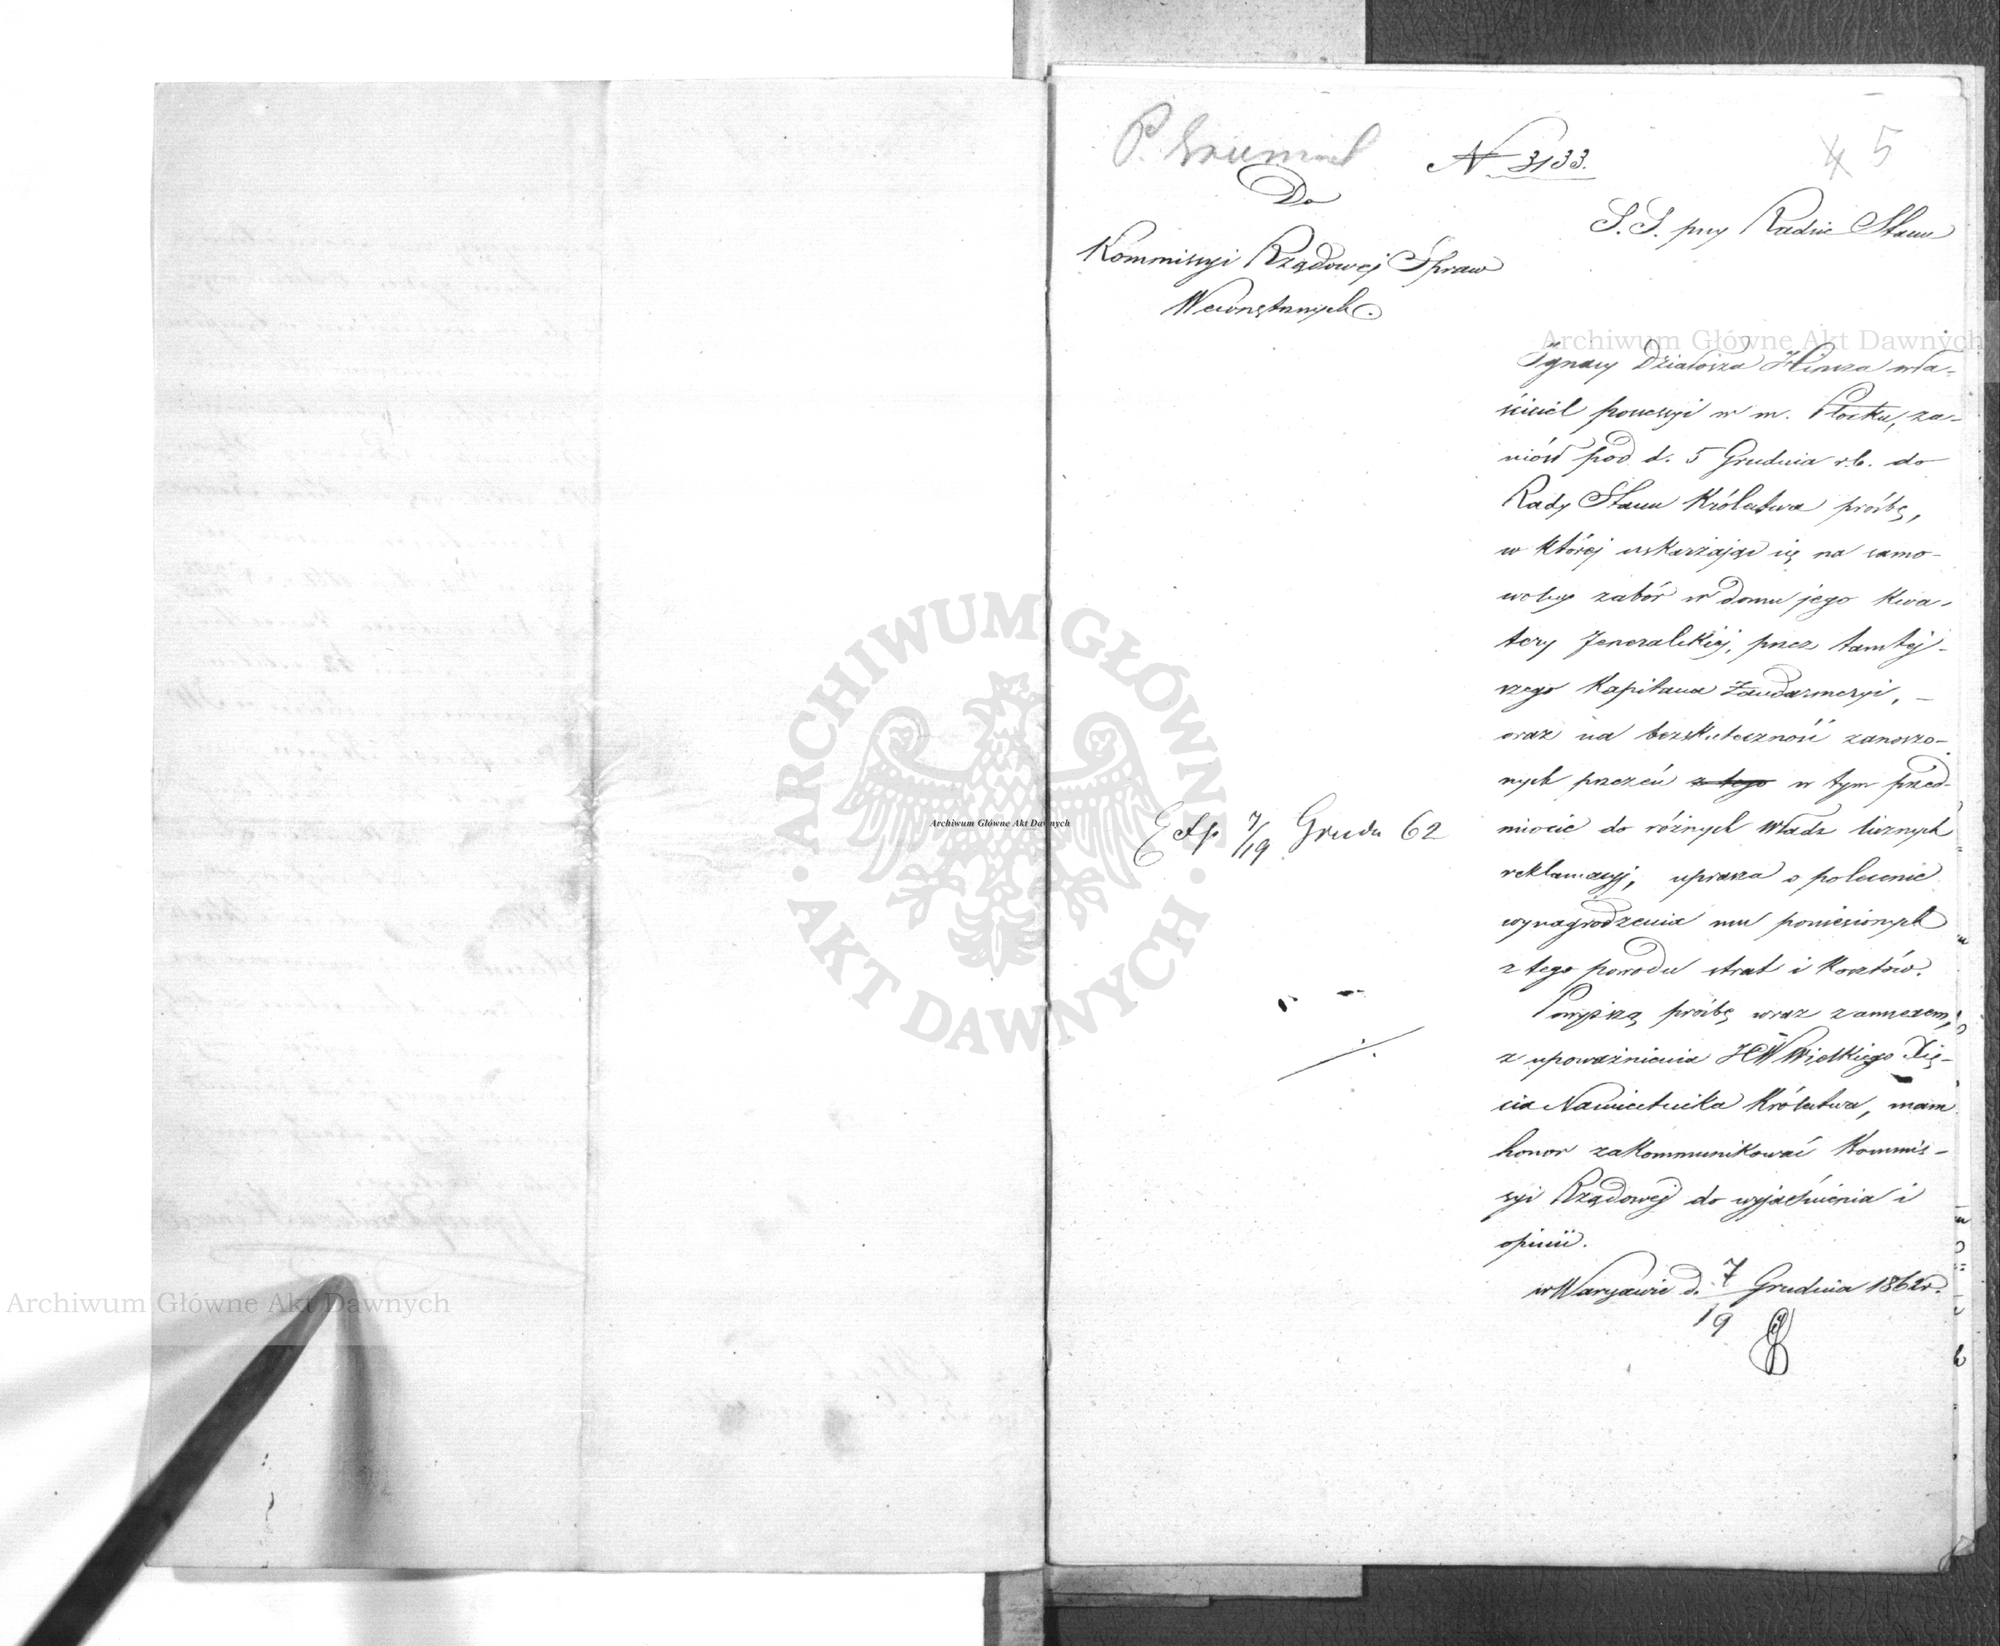 N 3133.
5
Do
Kommissyi Rządowej Spraw
Wewnętrznych.
S. S. przy Radzie Stanu
Ignacy Działosza Hincza wła-
ściciel possessyi w m. Płocku, za-
niósł pod d. 5 Grudnia r.b. do
Rady Stanu Królestwa prośbę,
w której uskarżając się na samo-
wolny zabór w domu jego kwa-
tery Jeneralskiej, przez tamtej-
szego Kapitana Żandarmeryi, –
oraz na bezskuteczność zanoszo-
nych przezeń z tego w tym przed-
miocie do różnych Władz licznych
reklamacyj, uprasza o polecenie
wynagrodzenia mu poniesionych
z tego powodu strat i kosztów.
Powyższą prośbę wraz z annexem,
z upoważnienia JCW Wielkiego Xię-
cia Namiestnika Królestwa, mam
honor zakommunikować Kommis-
syi Rządowej do wyjaśnienia i
opinii.
w Warszawie d. 7/19 Grudnia 1862 r.
Exp 7/19 Grudn 62
Archiwum Główne Akt Dawnych
Archiwum Główne Akt Dawnych
Archiwum Główne Akt Dawnych
ARCHIWUM GŁÓWNE
AKT DAWNYCH